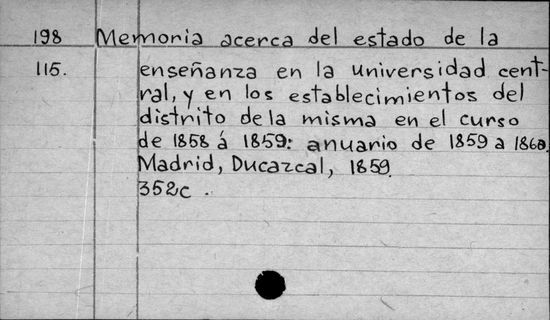 198 Memoria acerca del estado de la
115. enseñanza en la universidad cent-
ral, y en los establecimientos del
distrito de la misma en el curso
de 1858 á 1859: anuario de 1859 a 1860.
Madrid, Ducazcal, 1859.
352c .